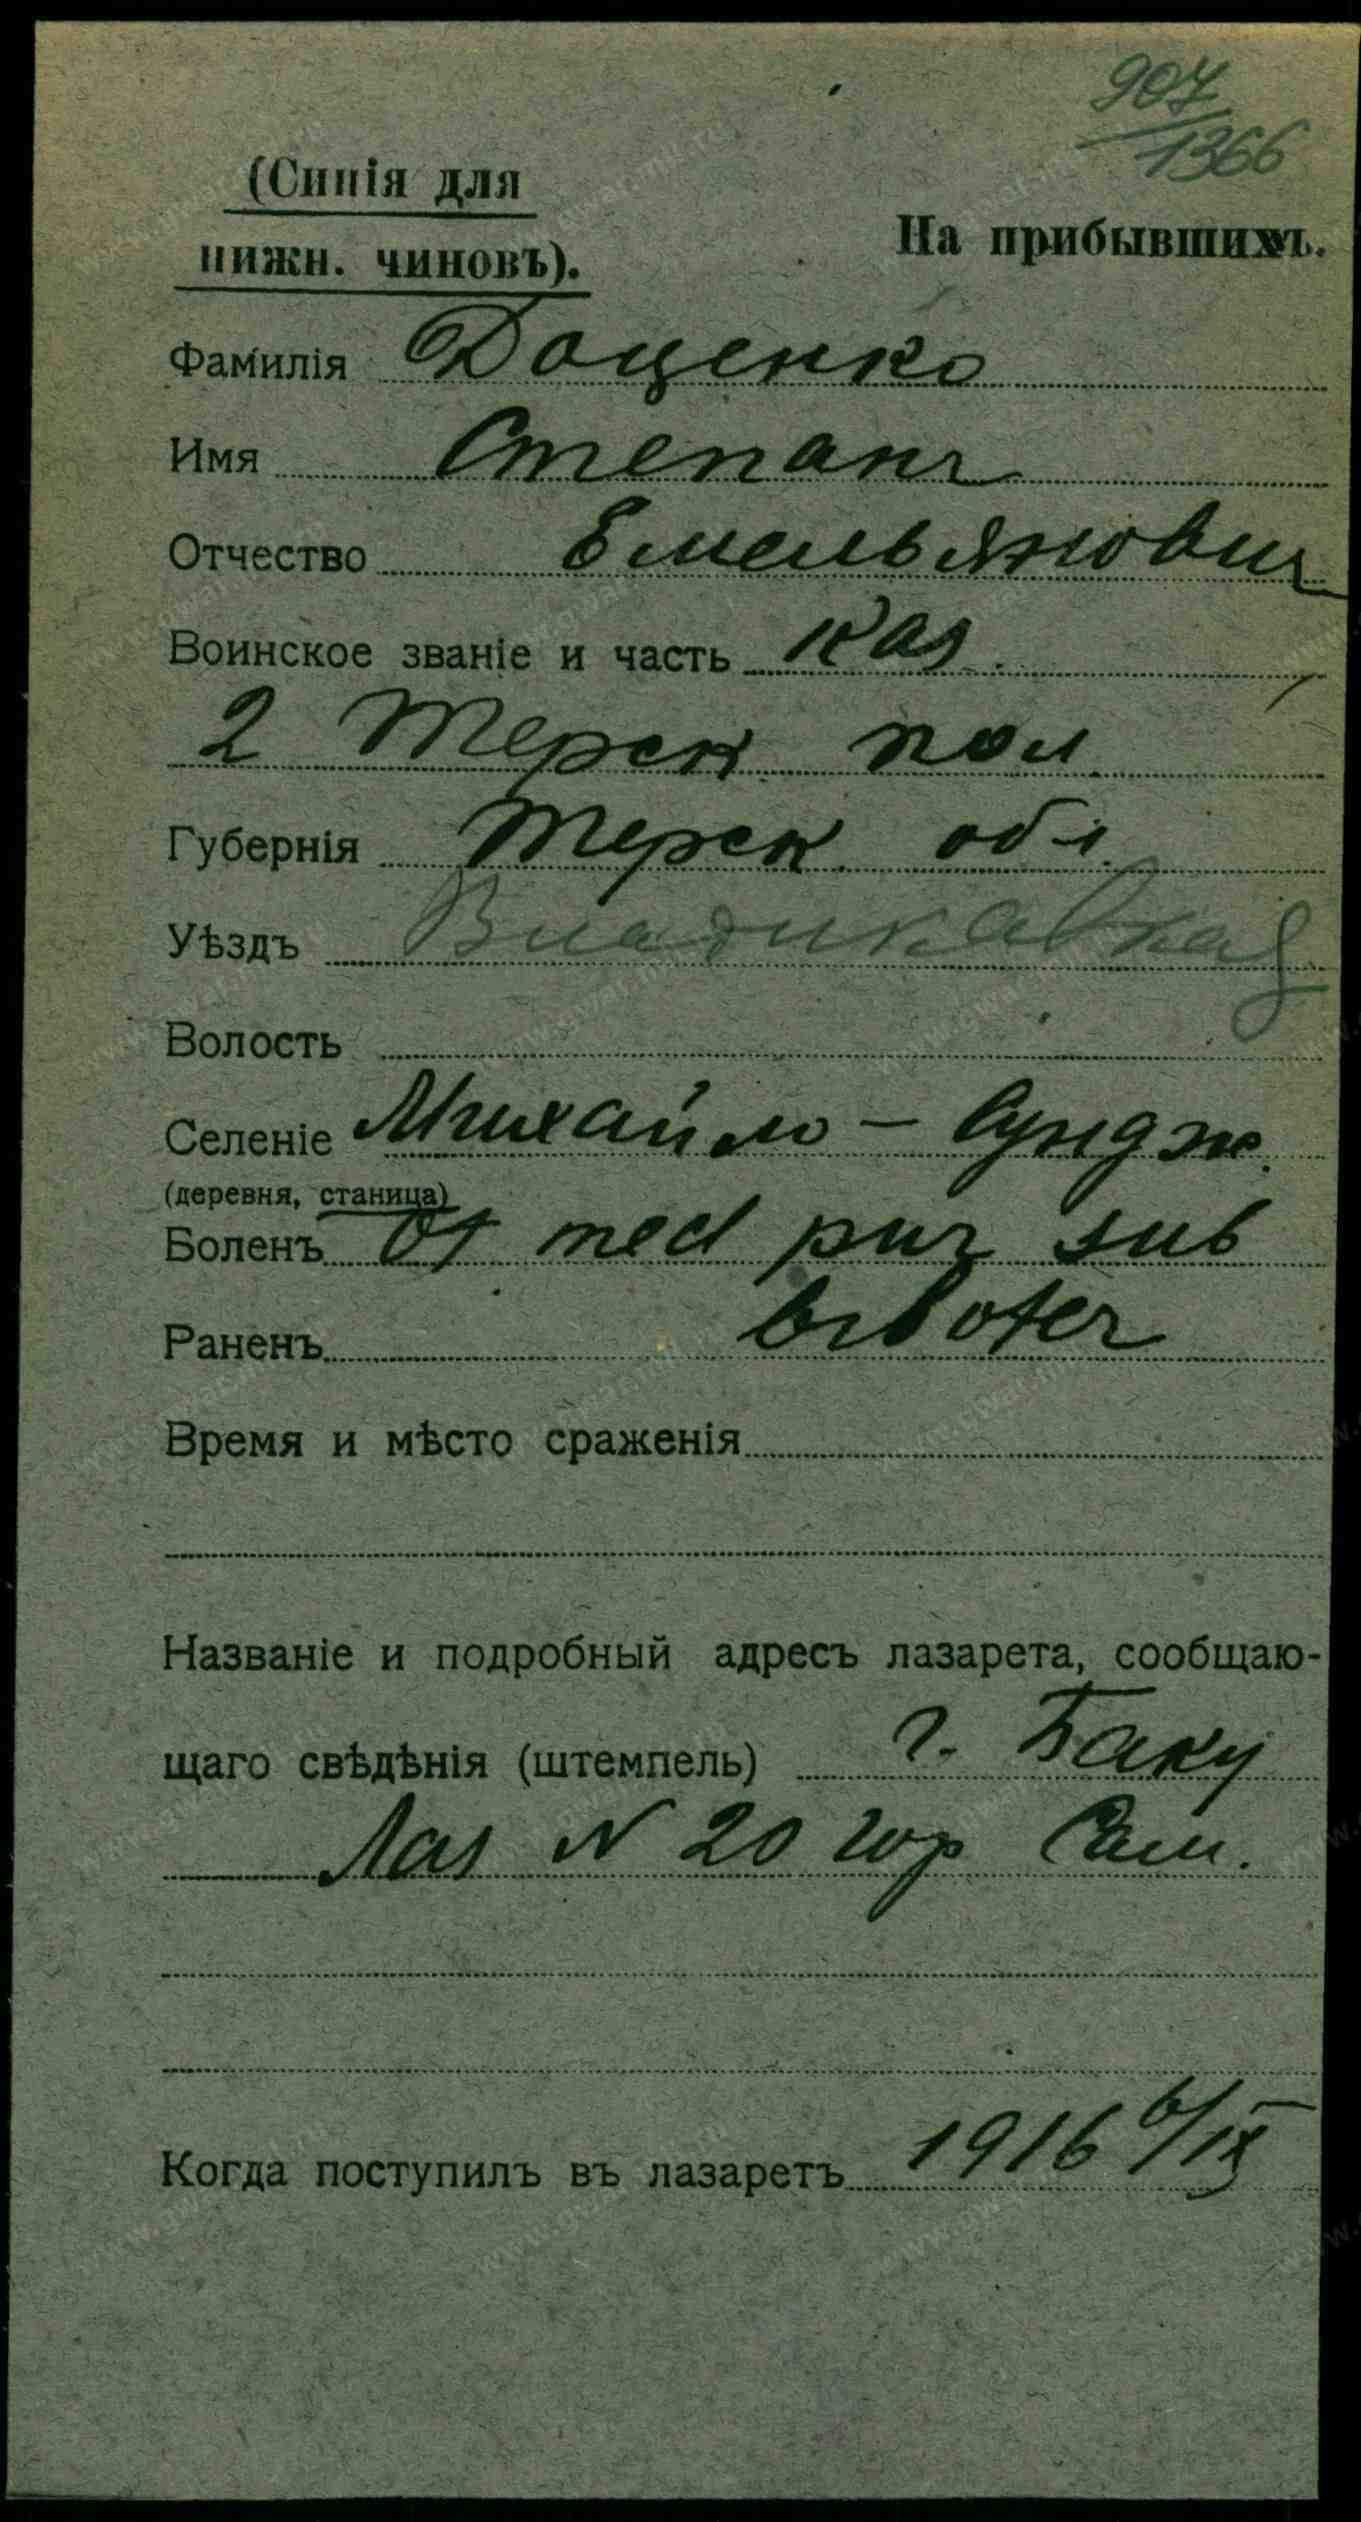 907
1366
(Синія для
нижн. чиновъ).
На прибывшихъ.
Фамилія Доценко
Имя Степанъ
Отчество Емельянович
Воинское званіе и часть каз.
2 Терск пол
Губернія Терск. обл.
Уѣздъ Владикавказ
Волость
Селеніе Михайло-Сундж.
(деревня, станица)
Боленъ Ot med pur sub
Раненъ
Время и мѣсто сраженія
Названіе и подробный адресъ лазарета, сообщаю-
щаго свѣдѣнія (штемпель) г. Баку
Лаз N 20 Гор Сам.
Когда поступилъ въ лазаретъ 1916 6/IX